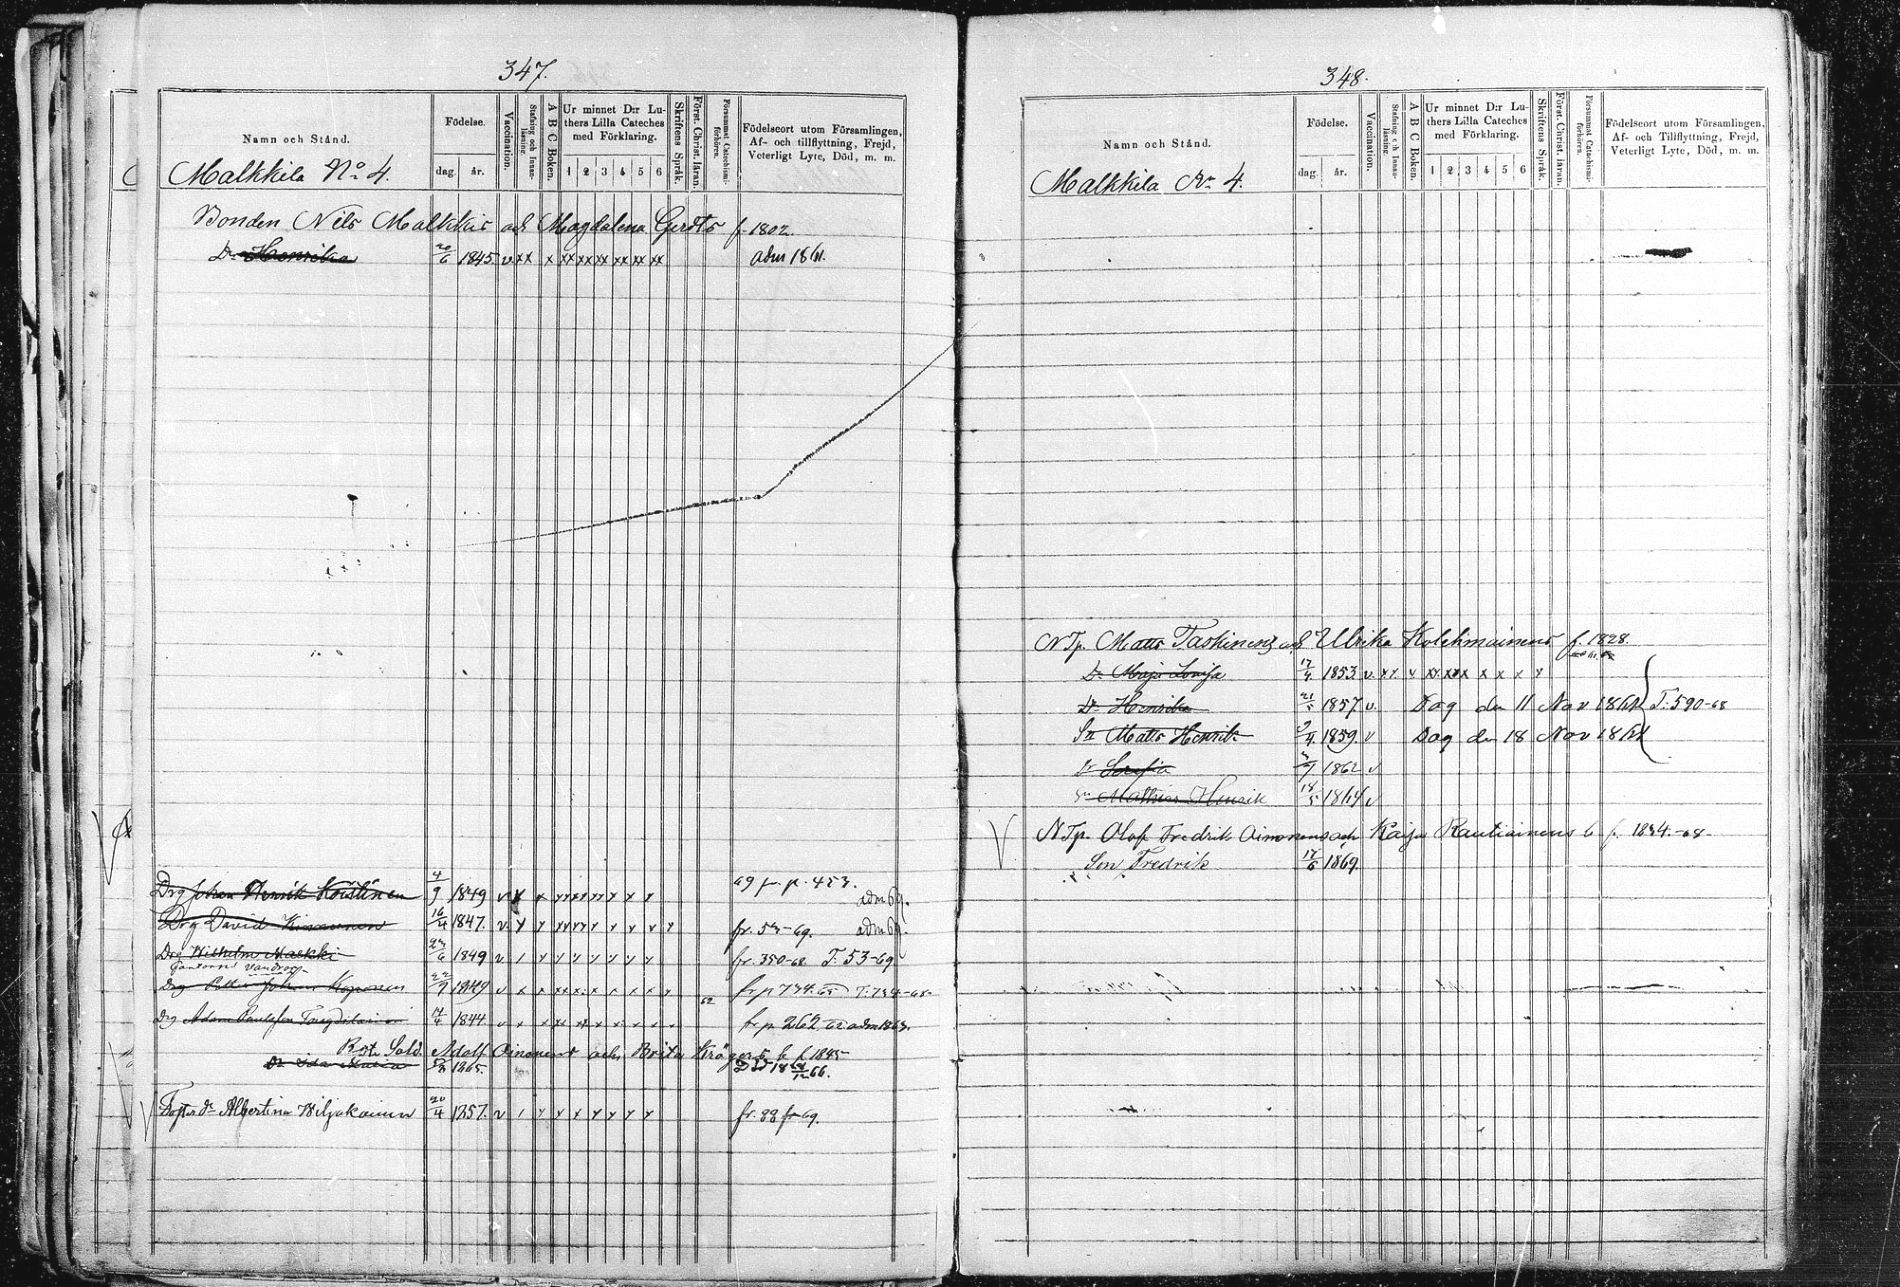 347.
Namn och Stånd.
Födelse.
dag. år.
Vaccination.
Stafning och Innanläsning.
A B C Boken.
Ur minnet D:r Luthers Lilla Cateches med Förklaring.
1 2 3 4 5 6
Skriftens Språk.
Först. Christ. läran.
Försummat Catechismiförhören.
Födelseort utom Församlingen, Af- och tillflyttning, Frejd, Veterligt Lyte, Död, m. m.
Malkkila No 4.
Bonden Nils Malkkis och Magdalena Gerdts f. 1802.
Dr Henrika 20/6 1845 v xx x xx xx xx xx xx xx adm 1861.
Drg Johan Henrik Koistinen 4/9 1849 v x x 69 fr. p. 453. adm 69.
Drg David Kinnunen 16/4 1847. v x x fr. 55-69. adm 69.
Drg Wilhelm Malkki 1849 v fr. 350-68 T. 53-69
Drg Petter Johan Koponen 22/9 1849 v x x fr p 734. 65 T. 734-68-
Drg Adam Paulsson 17/4 1844 v x x 62 fr p 262 62 adm 1863.
Rote Sold. Adolf Oinonens och Brita Krögers b f 1845
Dr Ida Maria 1865. Död 18 66.
Foster dr Albertina Wiljakainen 20/4 1857. v fr. 88 69.
348.
Namn och Stånd.
Födelse.
dag. år.
Vaccination.
Stafning och Innanläsning.
A B C Boken.
Ur minnet D:r Luthers Lilla Cateches med Förklaring.
1 2 3 4 5 6
Skriftens Språk.
Först. Christ. läran.
Försummat Catechismiförhören.
Födelseort utom Församlingen, Af- och Tillflyttning, Frejd, Veterligt Lyte, Död, m. m.
Malkkila No 4.
NTp. Matts Taskinens och Ulrika Kolehmainens f. 1828.
Dr Maja Lovisa 17/4 1853 v. xx
Dr Henrika 21/5 1857 v. Dog den 11 Nov 1861 T. 590-68
Sn Matts Henrik 9/4 1859 v Dog den 18 Nov 1861
Dr Sofia 1862 v
Sn Mathias Henrik 18/5 1864 v
NTp. Olof Fredrik Oinonens och Kaisa Rautiainens b f. 1834.-68-
Son Fredrik 17/6 1869.